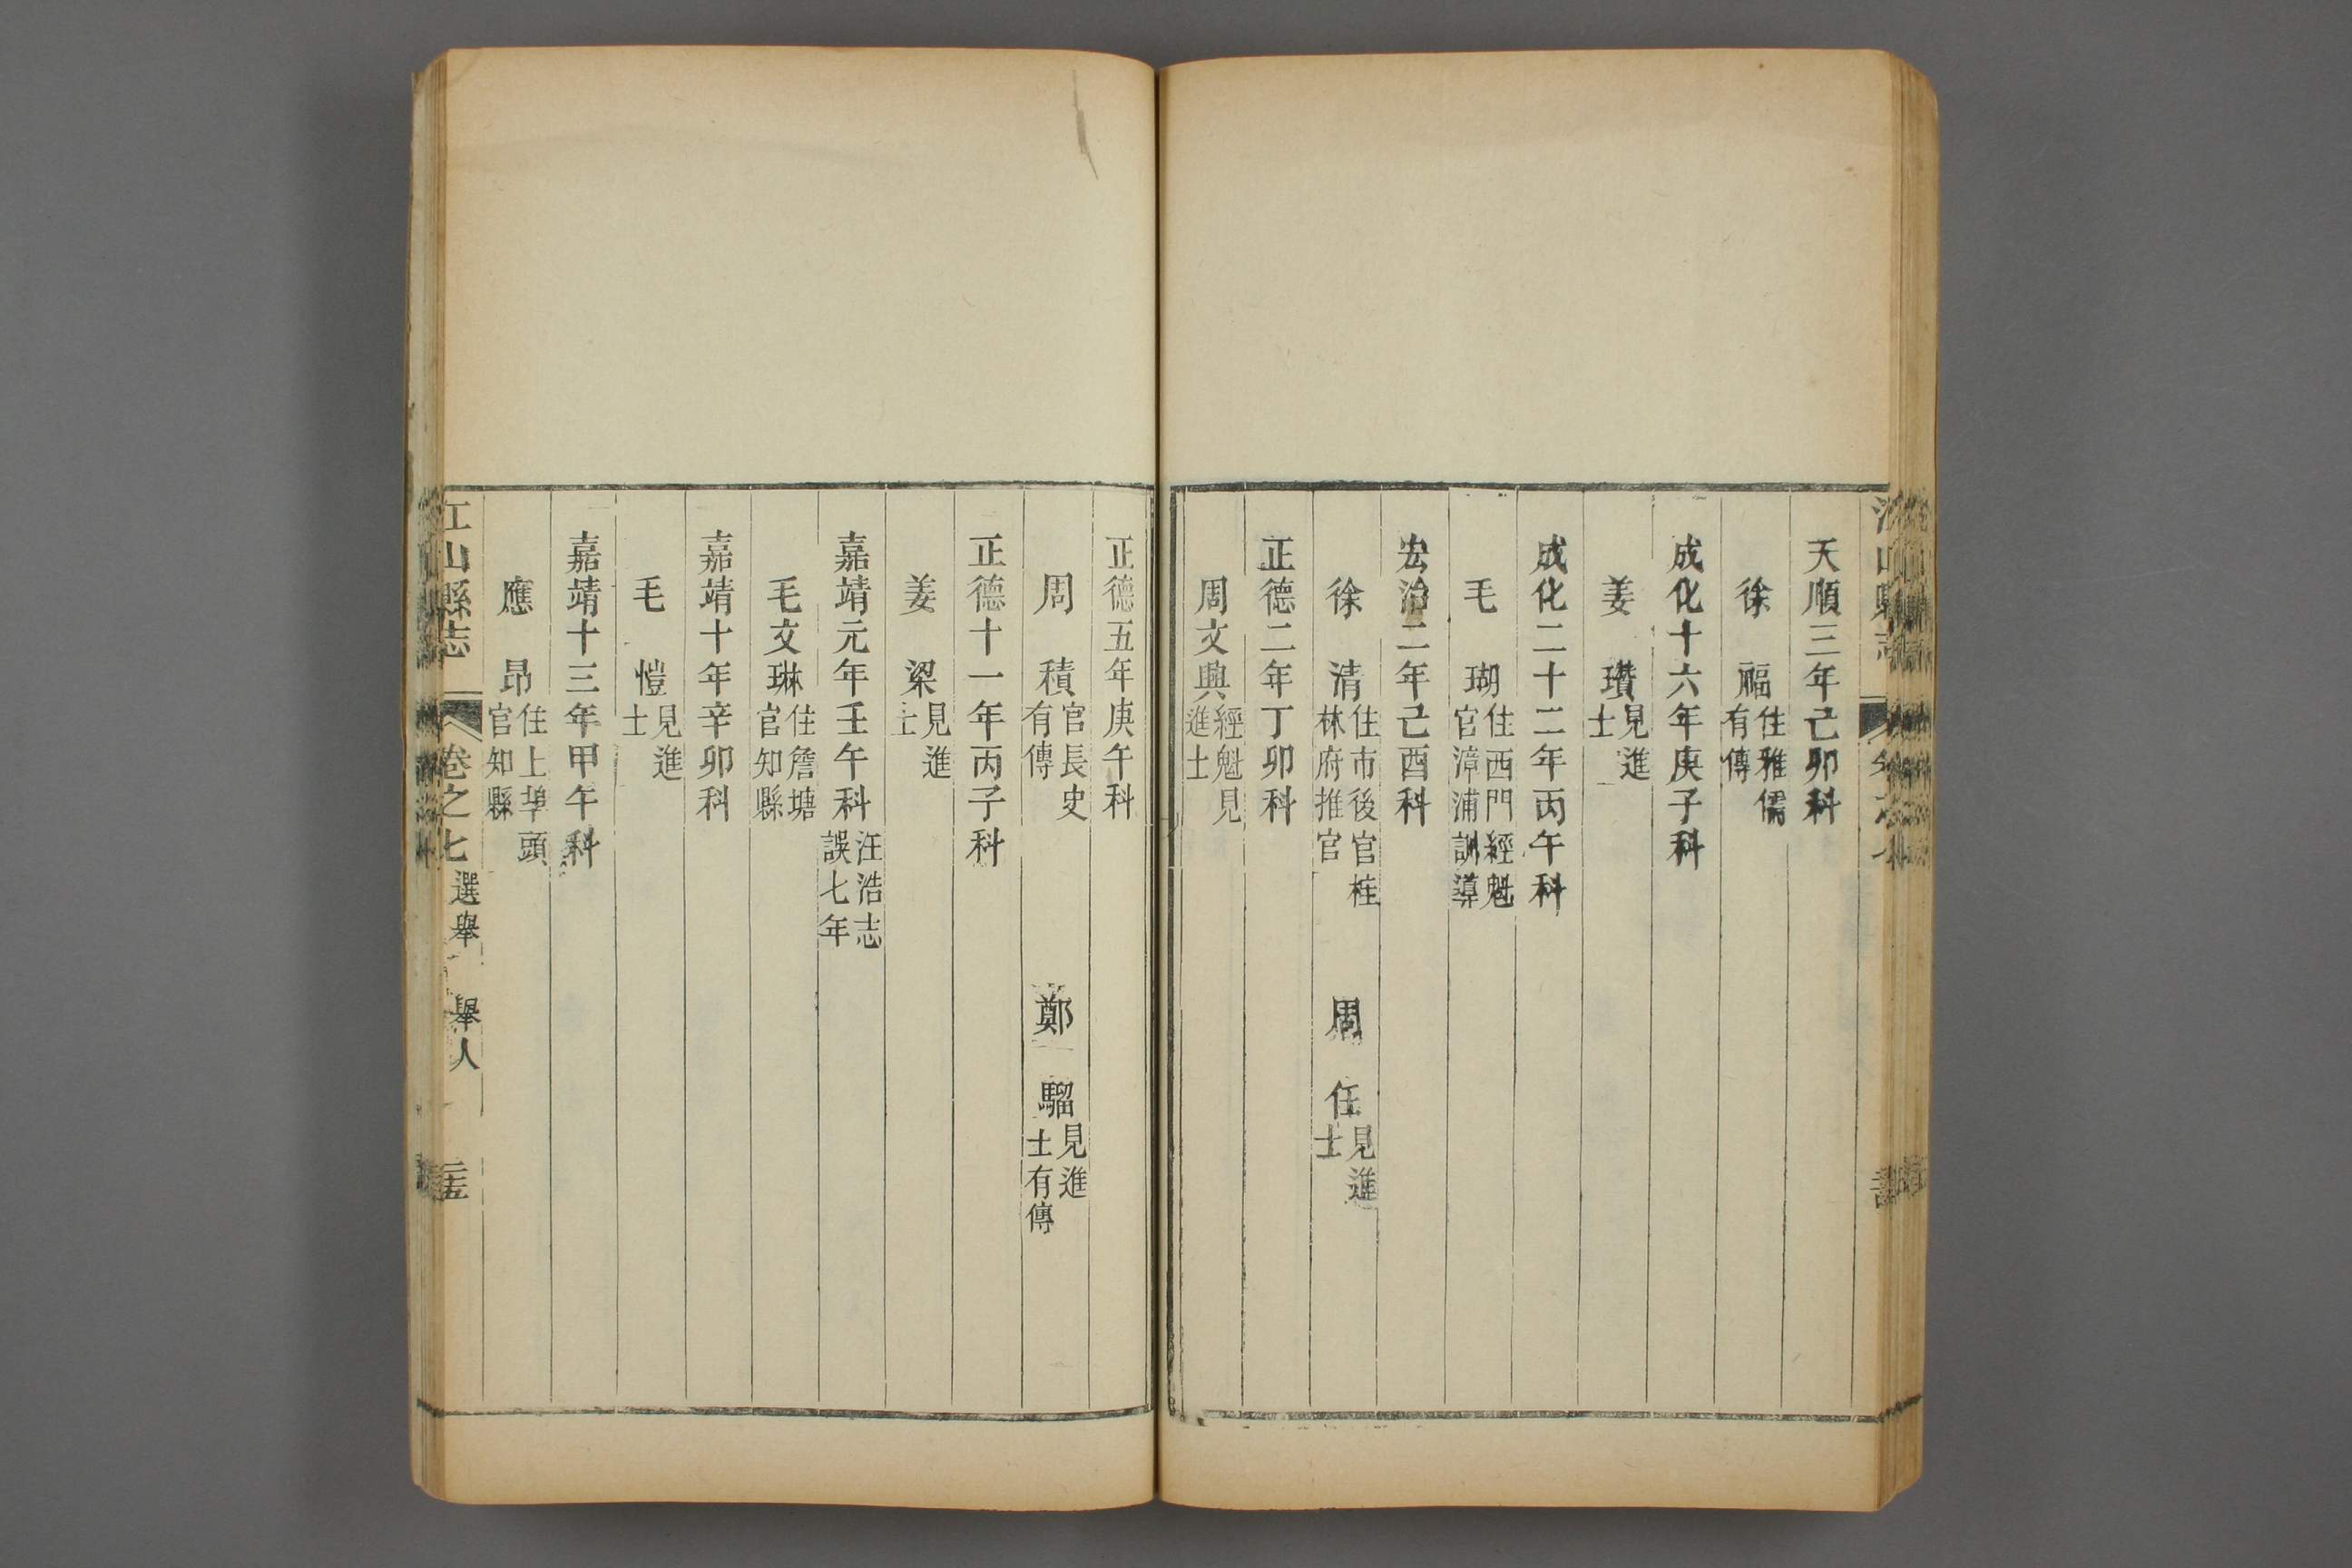 天順三年己卯科
徐 福住雅儒有傳
成化十六年庚子科
姜 瓚見進士
成化二十二年丙午科
毛 瑚住西門經魁官漳浦訓導
宏治二年己酉科
徐 清住市後官桂林府推官 周 任見進士
正德二年丁卯科
周文興經魁見進士
正德五年庚午科
周 積官長史有傳 鄭 騮見進士有傳
正德十一年丙子科
姜 梁見進士
嘉靖元年壬午科汪浩志誤七年
毛文琳住詹塘官知縣
嘉靖十年辛卯科
毛 愷見進士
嘉靖十三年甲午科
應 昂住上埠頭官知縣
江山縣志 卷之七 選舉 舉人 二十五